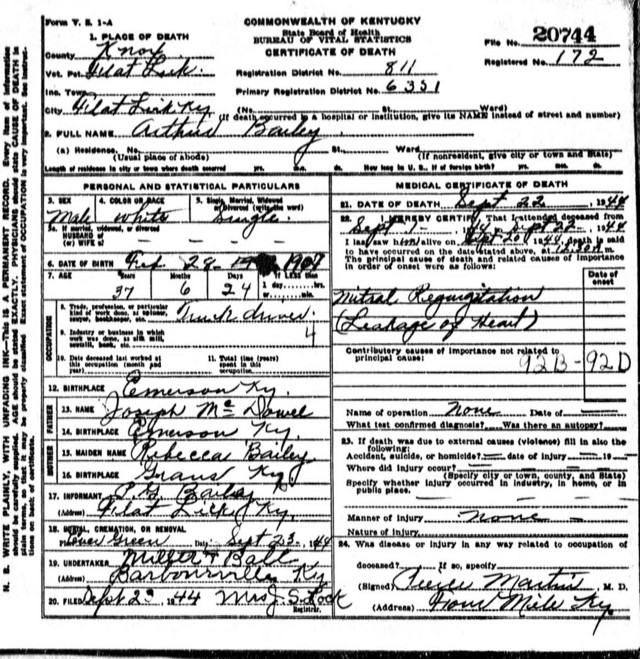 Form V. S. 1-A
COMMONWEALTH OF KENTUCKY
State Board of Health
BUREAU OF VITAL STATISTICS
CERTIFICATE OF DEATH
File No. 20744
Registered No. 172
1. PLACE OF DEATH
County Knox
Vot. Pct. Flat Lick.
Inc. Town
City Flat Lick Ky (No. St. Ward)
Registration District No. 811
Primary Registration District No. 6351
(If death occurred in a hospital or institution, give its NAME instead of street and number)
2. FULL NAME Arthur Bailey
(a) Residence. No. St. Ward
(Usual place of abode) (If nonresident, give city or town and State)
Length of residence in city or town where death occurred yrs. mos. ds. How long in U. S., if of foreign birth? yrs. mos. ds.
PERSONAL AND STATISTICAL PARTICULARS
3. SEX 4. COLOR OR RACE 5. Single, Married, Widowed or Divorced (write the word)
Male White Single.
5a. If married, widowed, or divorced
HUSBAND of
(or) WIFE of
6. DATE OF BIRTH Feb 28 1907
7. AGE Years Months Days If LESS than
37 6 24 1 day, hrs.
or min.
OCCUPATION
8. Trade, profession, or particular kind of work done, as spinner, sawyer, bookkeeper, etc. Truck driver
9. Industry or business in which work was done, as silk mill, sawmill, bank, etc. 4
10. Date deceased last worked at this occupation (month and year)
11. Total time (years) spent in this occupation
12. BIRTHPLACE Emerson Ky.
FATHER
13. NAME Joseph Mc Dowel
14. BIRTHPLACE Emerson Ky.
MOTHER
15. MAIDEN NAME Rebecca Bailey
16. BIRTHPLACE Ky
17. INFORMANT Bailey
(Address) Flat Lick, Ky
18. BURIAL, CREMATION, OR REMOVAL
Place Green Sept 23- 1944
19. UNDERTAKER Miller + Ball
(Address) Barbourville Ky
20. FILED Sept 23 1944 Mrs J. S. Lock
Registrar.
MEDICAL CERTIFICATE OF DEATH
21. DATE OF DEATH Sept 22, 1944
22. I HEREBY CERTIFY, That I attended deceased from
Sept 1- 1944, Sept 22- 1944
I last saw him alive on Sept 20 1944, death is said
to have occurred on the date stated above, at
The principal cause of death and related causes of importance
in order of onset were as follows:
Date of onset
Mitral Regurgitation
(Leakage of Heart)
Contributory causes of importance not related to
principal cause: 92B-92D
Name of operation None Date of
What test confirmed diagnosis? Was there an autopsy?
23. If death was due to external causes (violence) fill in also the
following:
Accident, suicide, or homicide? date of injury 19
Where did injury occur?
(Specify city or town, county, and State)
Specify whether injury occurred in industry, in home, or in
public place.
Manner of injury None
Nature of injury
24. Was disease or injury in any way related to occupation of
deceased? If so, specify
(Signed) Martin M. D.
(Address) Four Mile Ky.
N. B. WRITE PLAINLY, WITH UNFADING INK—This IS A PERMANENT RECORD. Every item of information